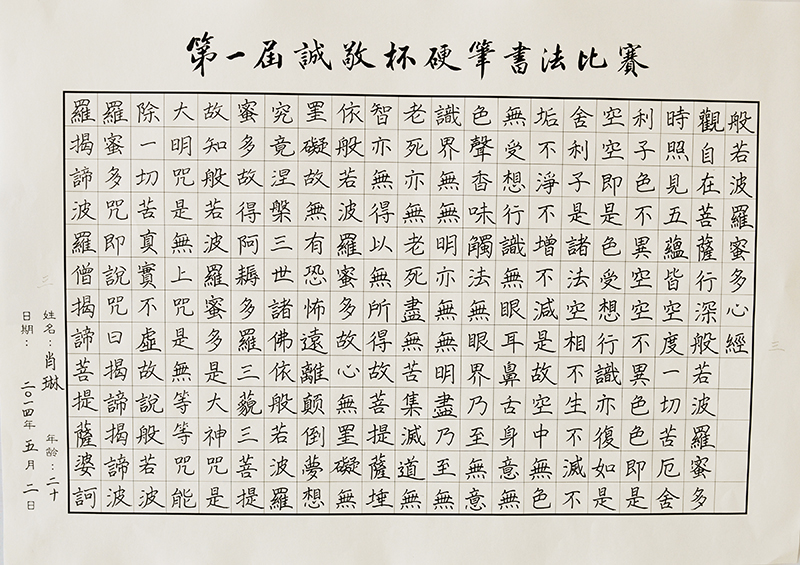 第一届誠敬杯硬筆書法比賽
般若波羅蜜多心經
觀自在菩薩行深般若波羅蜜多
時照見五蘊皆空度一切苦厄舍
利子色不異空空不異色色即是
空空即是色受想行識亦復如是
舍利子是諸法空相不生不滅不
垢不淨不增不減是故空中無色
無受想行識無眼耳鼻舌身意無
色聲香味觸法無眼界乃至無意
識界無無明亦無無明盡乃至無
老死亦無老死盡無苦集滅道無
智亦無得以無所得故菩提薩埵
依般若波羅蜜多故心無罣礙無
罣礙故無有恐怖遠離顛倒夢想
究竟涅槃三世諸佛依般若波羅
蜜多故得阿耨多羅三藐三菩提
故知般若波羅蜜多是大神咒是
大明咒是無上咒是無等等咒能
除一切苦真實不虛故說般若波
羅蜜多咒即說咒曰揭諦揭諦波
羅揭諦波羅僧揭諦菩提薩婆訶
姓名：肖琳 年齡：二十
日期：二〇一四年五月二日
三
三